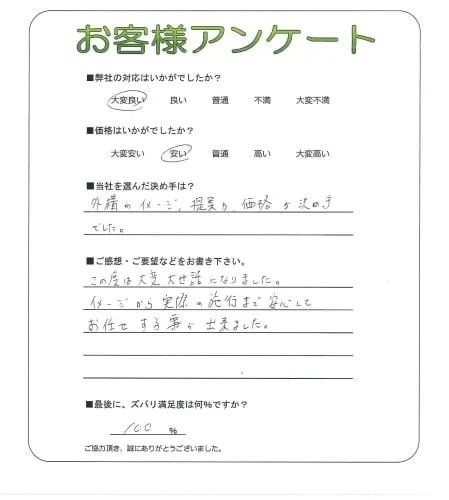 お客様アンケート
■弊社の対応はいかがでしたか？
大変良い 良い 普通 不満 大変不満
■価格はいかがでしたか？
大変安い 安い 普通 高い 大変高い
■当社を選んだ決め手は？
外構のイメージ、提案力、価格が決め手
でした。
■ご感想・ご要望などをお書き下さい。
この度は大変お世話になりました。
イメージから実際の施行まで安心して
お任せする事が出来ました。
■最後に、ズバリ満足度は何％ですか？
100 %
ご協力頂き、誠にありがとうございました。